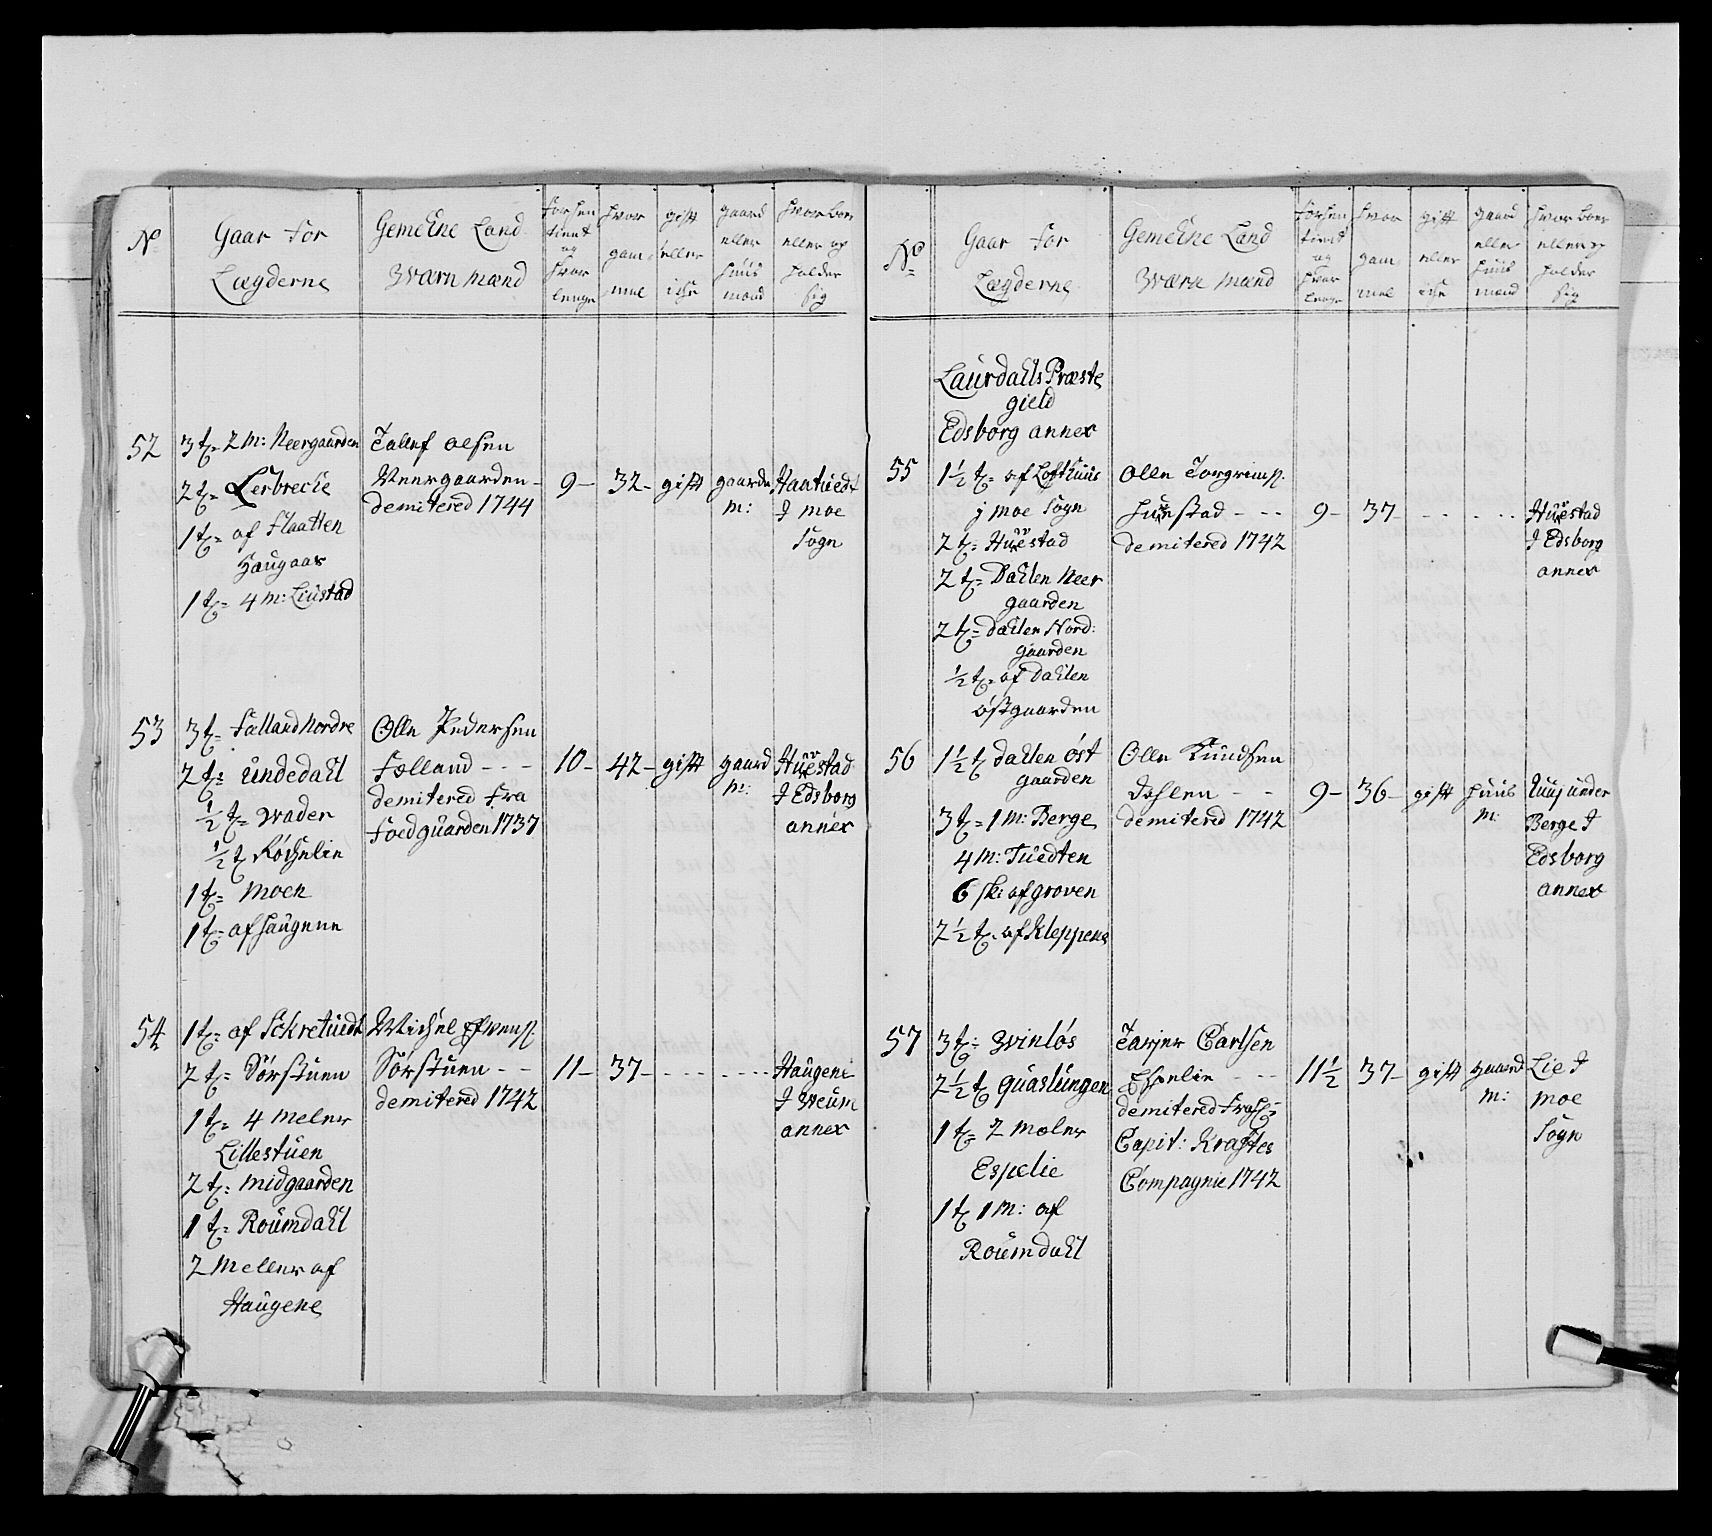 No
Gaar for
Lægderne
GemeEne Land
Wærn mænd
forhen
tient
og
hvor
lenge
hvor
gam
mel
gift
eller
iche
gaard
eller
huus
mand
hvor boer
eller op
holder
sig
52
3 t= 2 m: Neergaarden
2 t= Lerbreche
1 t= af Flaatten
Haugaar
1 t= 4 m: Liustad
Tallef olsen
Neergaarden -
demitered 1744
9 -
32 -
gift
gaards
m:
Haatuedt
J moe
Sogn
53
3 t= Falland Nordre
2 t= Undedahl
½ t= Wader
½ t
1 t= Moen
1 t= af Haugene
Olle Pedersen
Følland - - -
demitered fra
Foedguarden 1737
10 -
42 -
gift
gaard
m:
Huestad
J Edsborg
annex
54
1 t= af Sckretuedt
2 t= Sørstuen
1 t= 4 meler
Lillestuen
2 t: midgaarden
1 t= Roumdahl
2 meller af
Haugene
Michel
Sørstuen - -
demitered 1742
11 -
37 -
- - - -
- - - -
Haugene
J Weum
annex
No
Gaar for
Lægderne
GemeEne Land
Wærn mænd
forhen
tient
og
hvor
lenge
hvor
gam
mel
gift
eller
iche
gaard
eller
huus
mand
hvor boer
eller op
holder
sig
Laurdahls Præste
gield
Edsborg annex
55
1½ t= af Lofthuus
j moe Sogn
2 t= Huestad
2 t= Dahlen Neer
gaarden
2 t= Dahlen Nord:
gaarden
½ t= af Dahlen
østgaarden
Olle Torgrims.
Huestad - - -
demitered 1742
9 -
37 -
- - -
- - -
Huestad
J Edsborg
annex
56
1½ t dahlen øst
gaarden
3 t= 1 m: Berge
4 m: Tuedten
6 sk: af groven
2½ t. af Kleppene
Olle Knudsen
Dahlen - -
demitered 1742
9 -
36 -
gift
huus
m:
under
Berge J
Edsborg
annex
57
3 t= Winløs
2½ t Quaslungen
1 t= 2 mæler
Espelie
1 t 1 m: af
Roumdahl
Tarjer Carlsen
- - -
demitered fra
Capit: Kraftes
Compagnie 1742
11½
37 -
gift
gaard
m:
Lie J
moe
Sogn